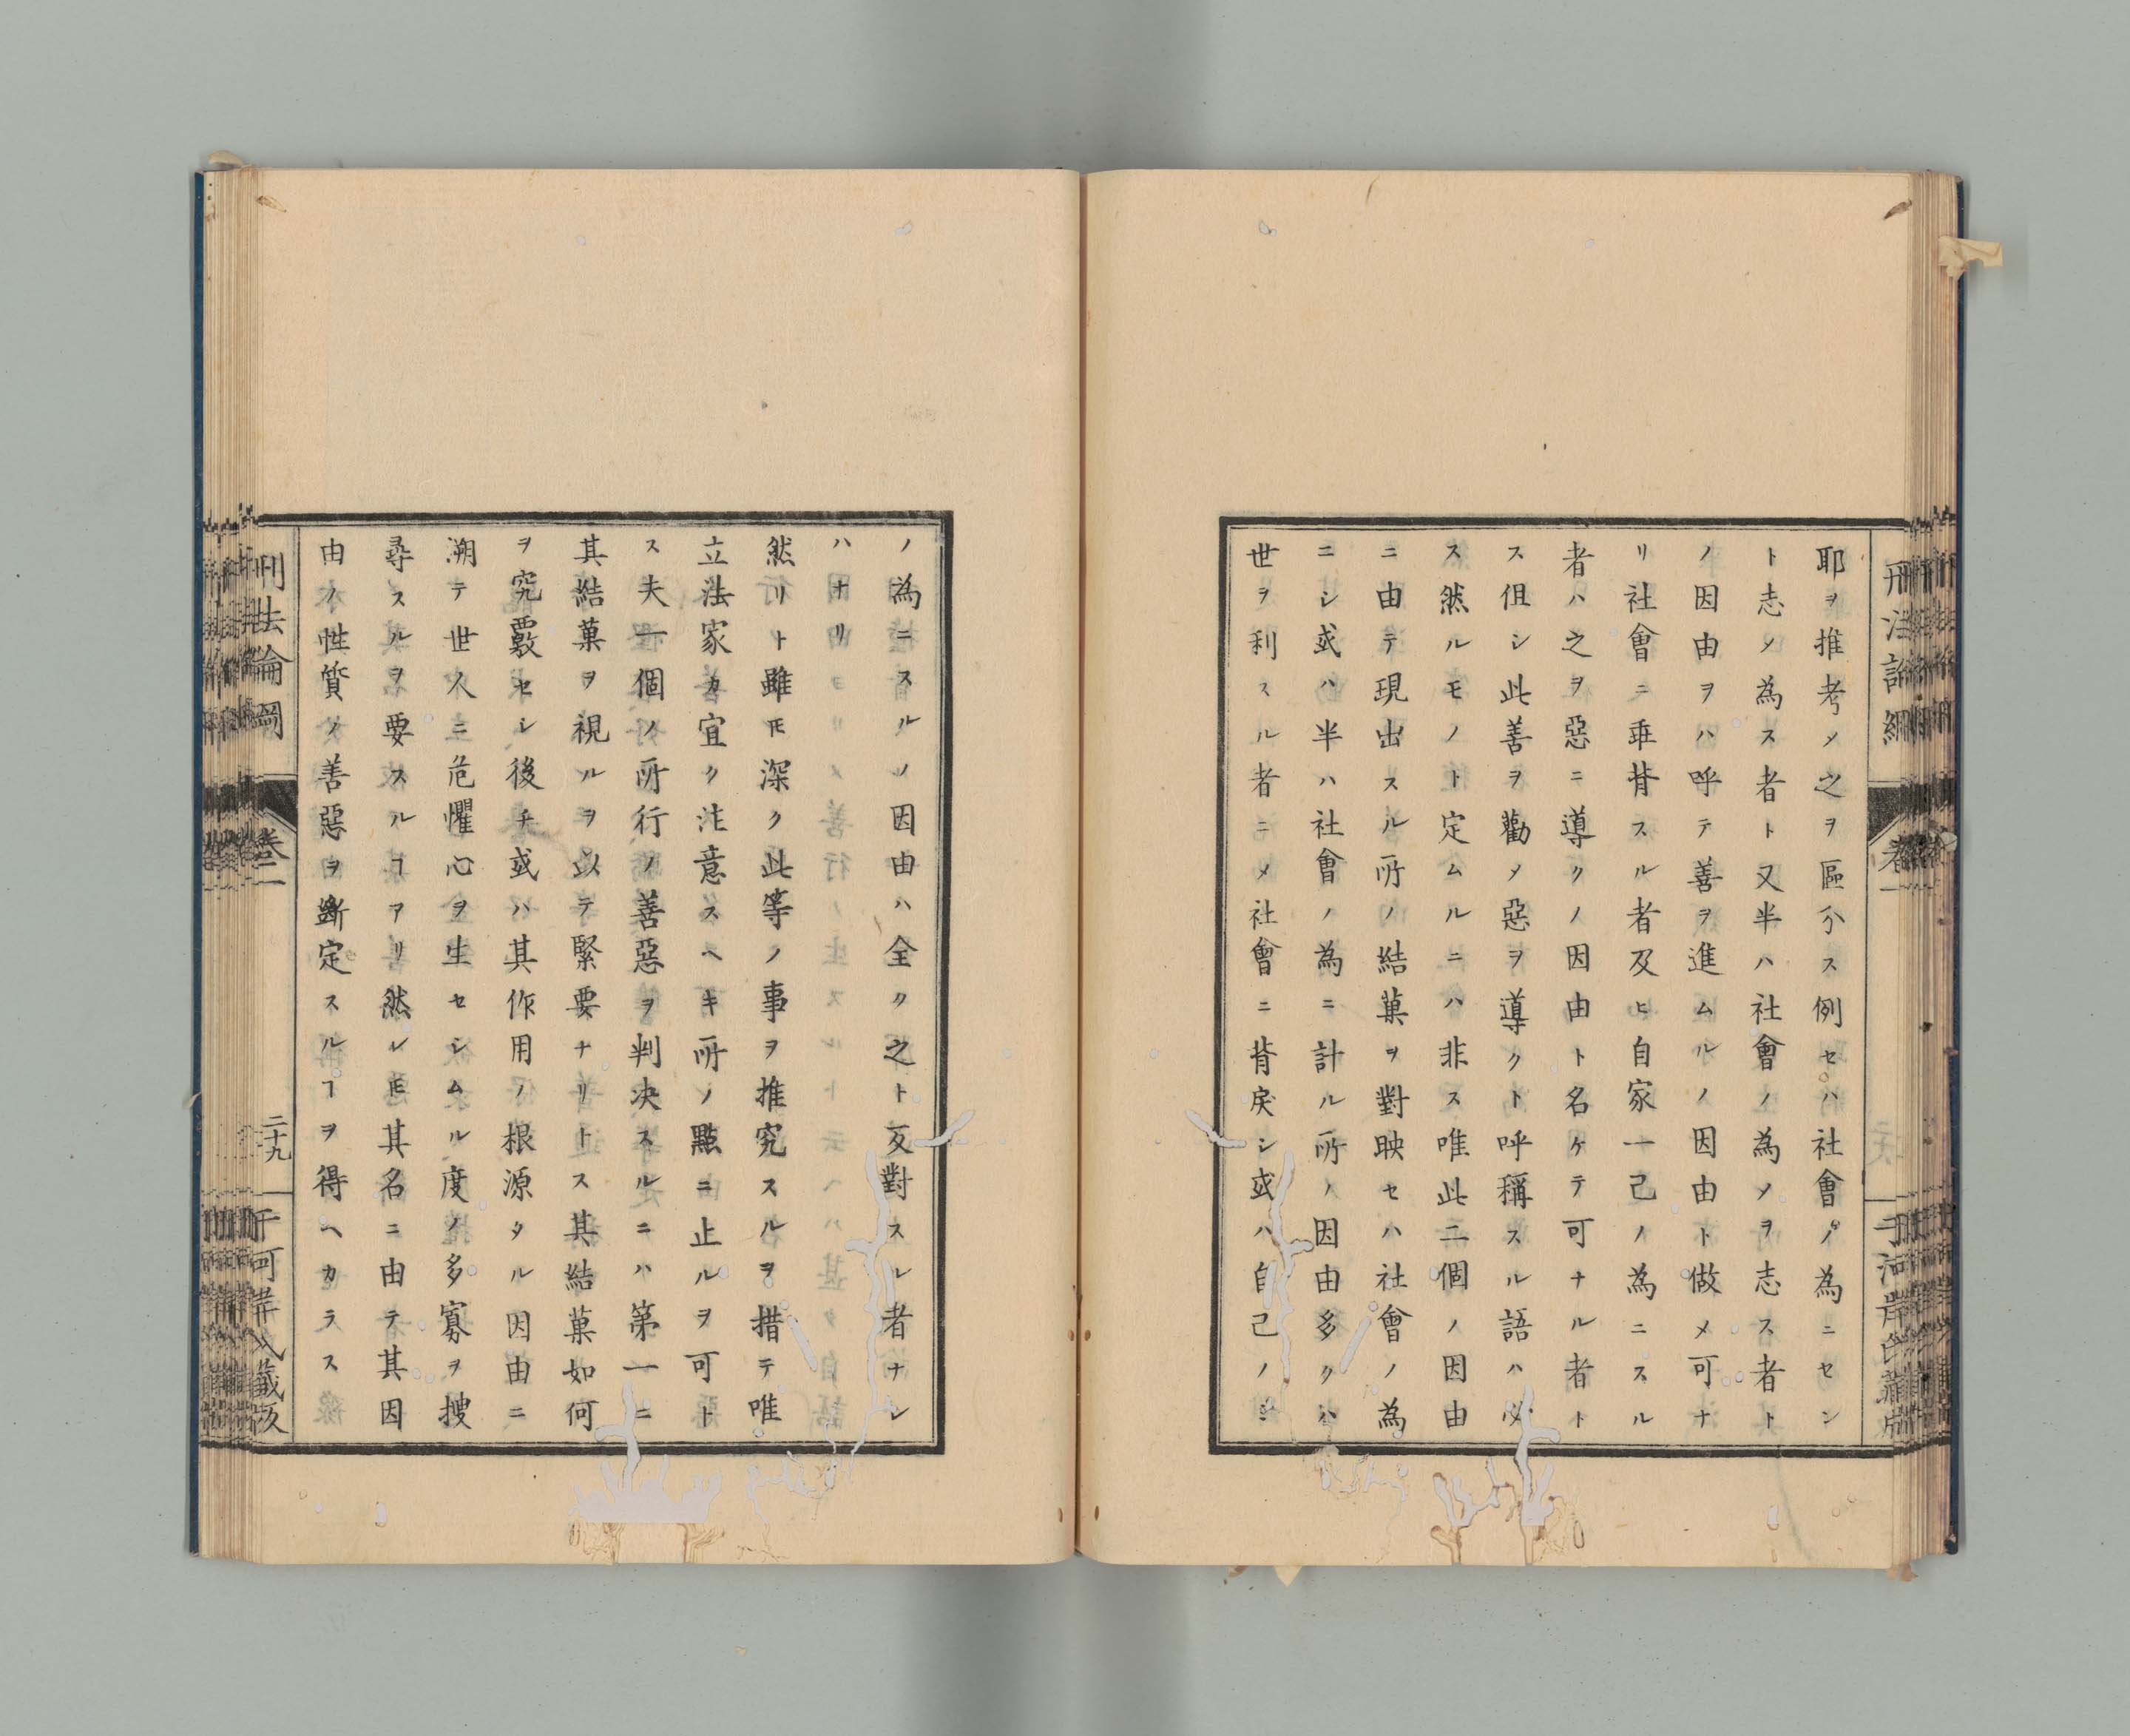 耶ヲ推考メ之ヲ區分ス例セハ社會ノ為ニセン
ト志メ為ス者ト又半ハ社會ノ為メヲ志ス者ト
ノ因由ヲハ呼テ善ヲ進ムルノ因由ト做メ可ナ
リ社會ニ乖背スル者及ヒ自家一己ノ為ニスル
者ハ之ヲ惡ニ導クノ因由ト名ケテ可ナル者ト
ス但シ此善ヲ勸メ惡ヲ導クト呼稱スル語ハ必
ス然ルモノト定ムルニハ非ス唯此二個ノ因由
ニ由テ現出スル所ノ結菓ヲ對映セハ社會ノ為
ニシ或ハ半ハ社會ノ為ニ計ル所ノ因由多クハ
世ヲ利スル者ニメ社會ニ背戻シ或ハ自己ノミ
ノ為ニスルノ因由ハ全ク之ト反對スレ者ナレ
ハナリ
然リト雖𪜈深ク此等ノ事ヲ推究スルヲ措テ唯
立法家カ宜ク注意スヘキ所ノ點ニ止ルヲ可ト
ス夫一個ノ所行ノ善惡ヲ判决スルニハ第一ニ
其結菓ヲ視ルヲ以テ緊要ナリトス其結菓如何
ヲ究覈セシ後チ或ハ其作用ノ根源タル因由ニ
溯テ世人ニ危懼心ヲ生セシムル度ノ多寡ヲ搜
尋スルヲ要スルヿアリ然レ𪜈其名ニ由テ其因
由ノ性質ノ善惡ヲ斷定スルヿヲ得ヘカラス
刑法論綱
卷二
二十九